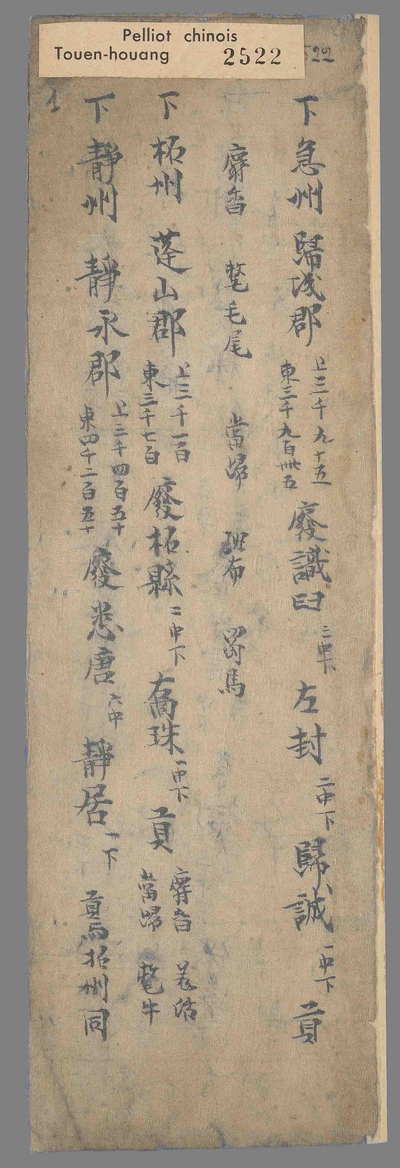 Pelliot chinois
Touen-houang 2522
522
1
下 悉州 歸誠郡 上三千九十五 東三千九百卅五 廢識臼 三中下 左封 二中下 歸誠 一中下 貢
麝香 氂毛尾 當歸 班布 蜀馬
下 柘州 蓬山郡 上三千一百 東三千七百 廢柘縣 二中下 喬珠 一中下 貢 麝香 羌活 當歸 氂牛
下 靜州 靜永郡 上三千四百五十 東四千二百五十 廢悉唐 六中 靜居 一下 貢与柘州同